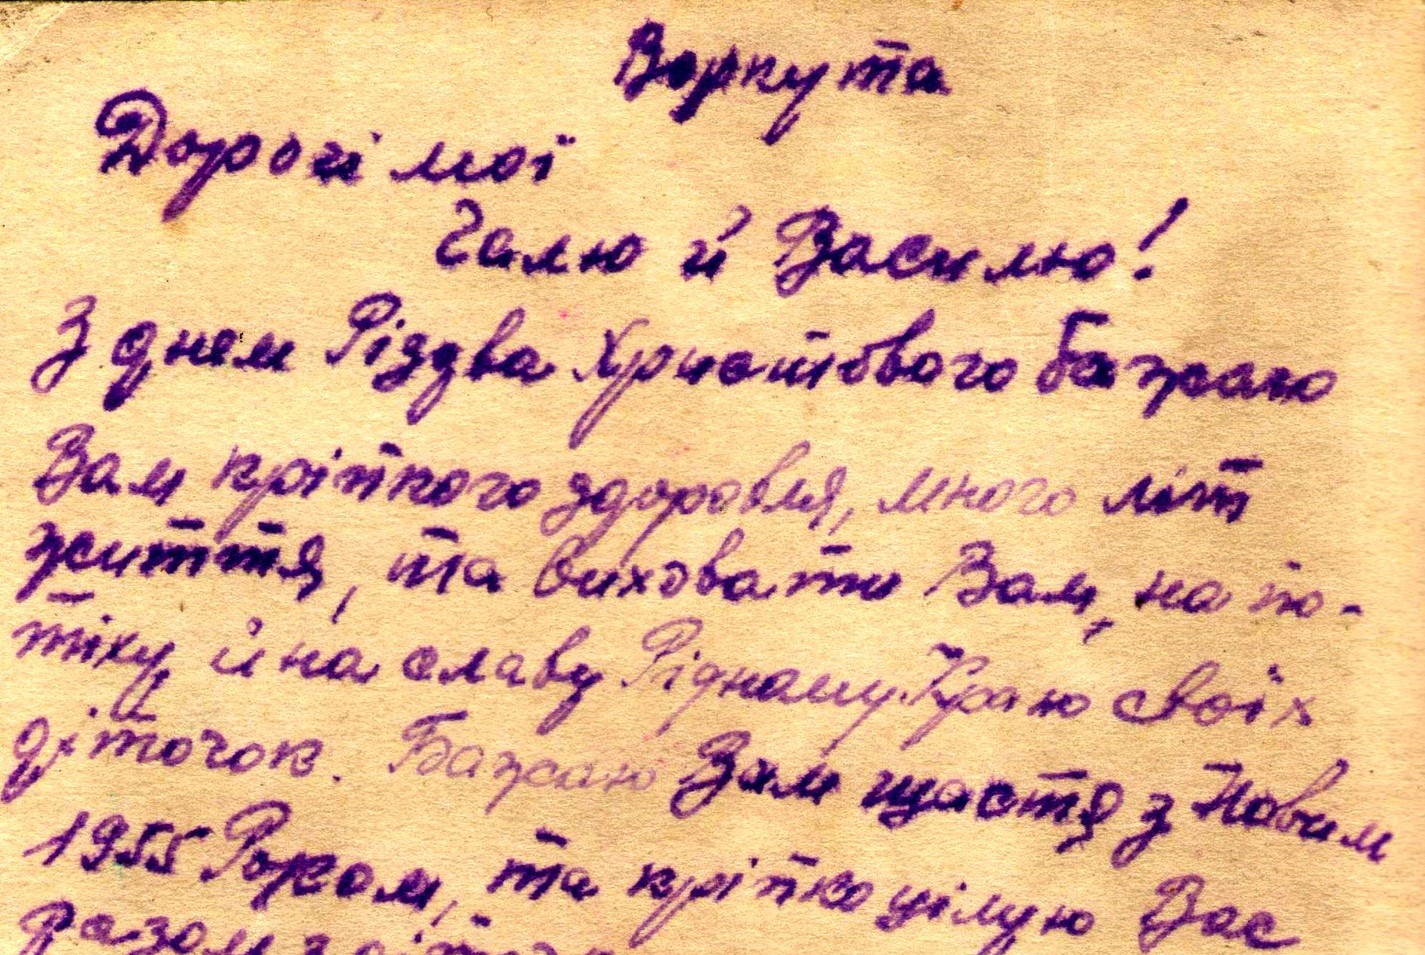 Воркута
Дорогі мої
Галю й Василю!
З днем Різдва Христового бажаю
Вам кріпкого здоровля, много літ
життя, та виховати Вам, на по-
тіху й на славу Рідному Краю своїх
діточок. Бажаю Вам щастя з Новим
1955 Роком, та кріпко цілую Вас
разом з